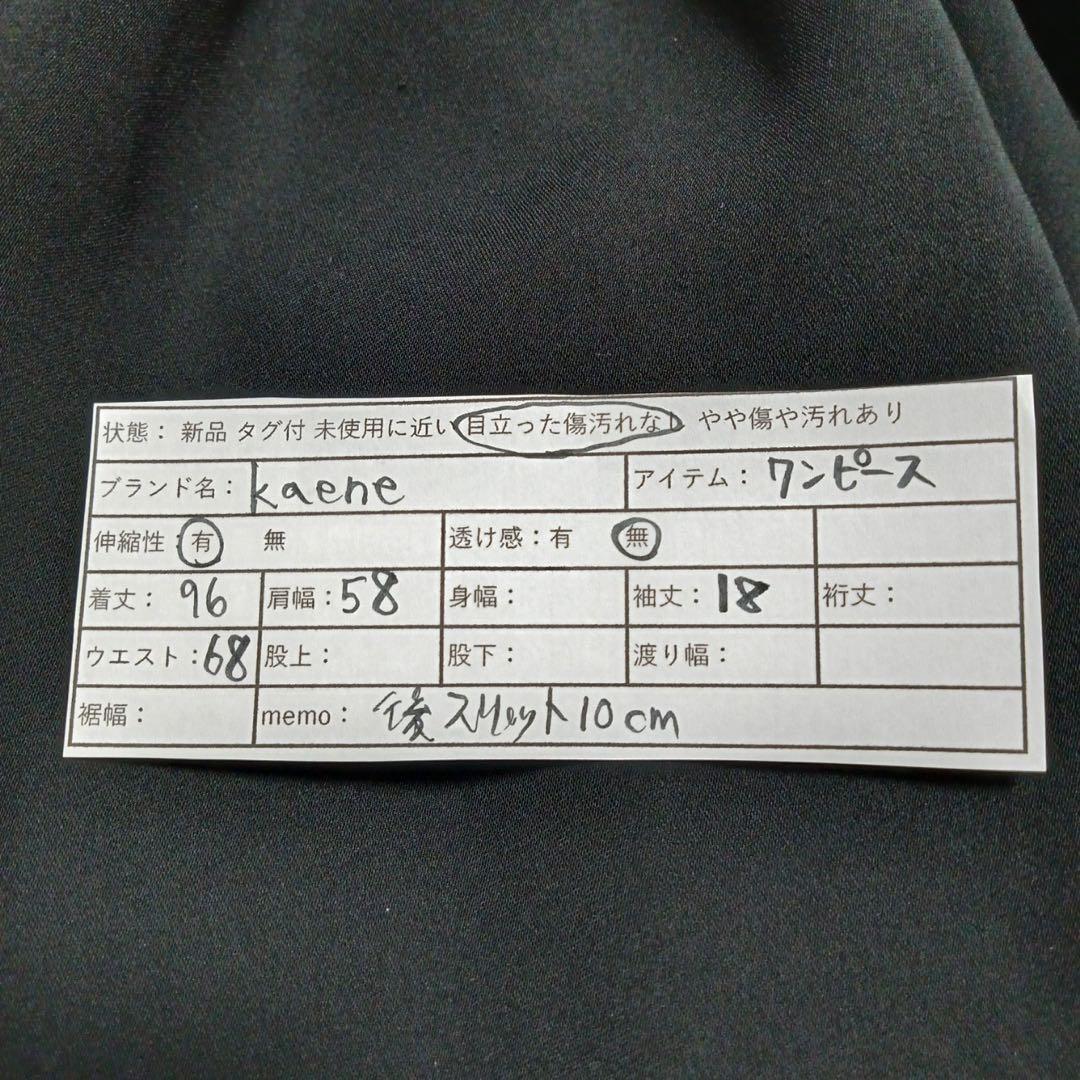 状態： 新品 タグ付 未使用に近い 目立った傷汚れなし やや傷や汚れあり
ブランド名： kaene アイテム： ワンピース
伸縮性：有 無 透け感：有 無
着丈： 96 肩幅：58 身幅： 袖丈：18 裄丈：
ウエスト：68 股上： 股下： 渡り幅：
裾幅： memo： 後スリット10cm